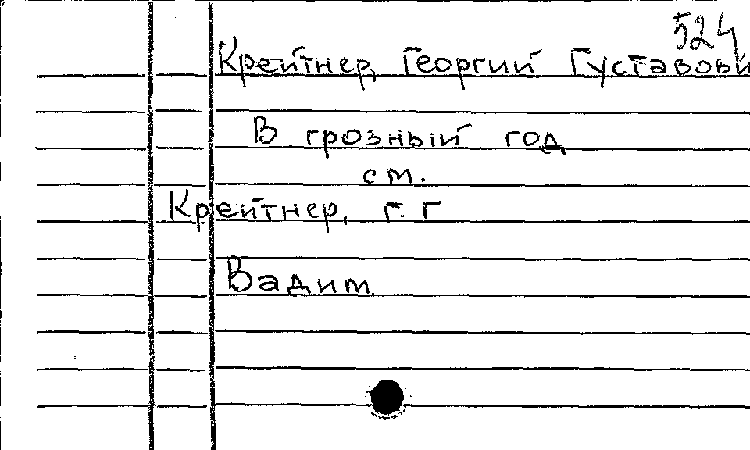 524
Крейтнер, Георгий Густавови
В грозный год
см.
Крейтнер, Г. Г
Вадим